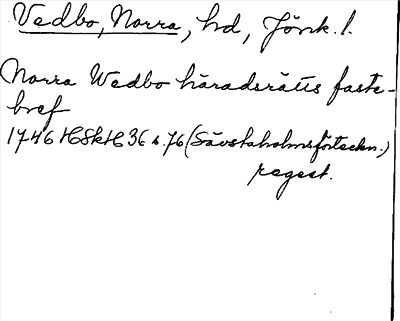 Vedbo, Norra, hd, Jönk. l.
Norra Wedbo häradsrätts faste-
bref
1746 HSkH 36 s. 76 (Sävstaholmsförteckn.)
regest.